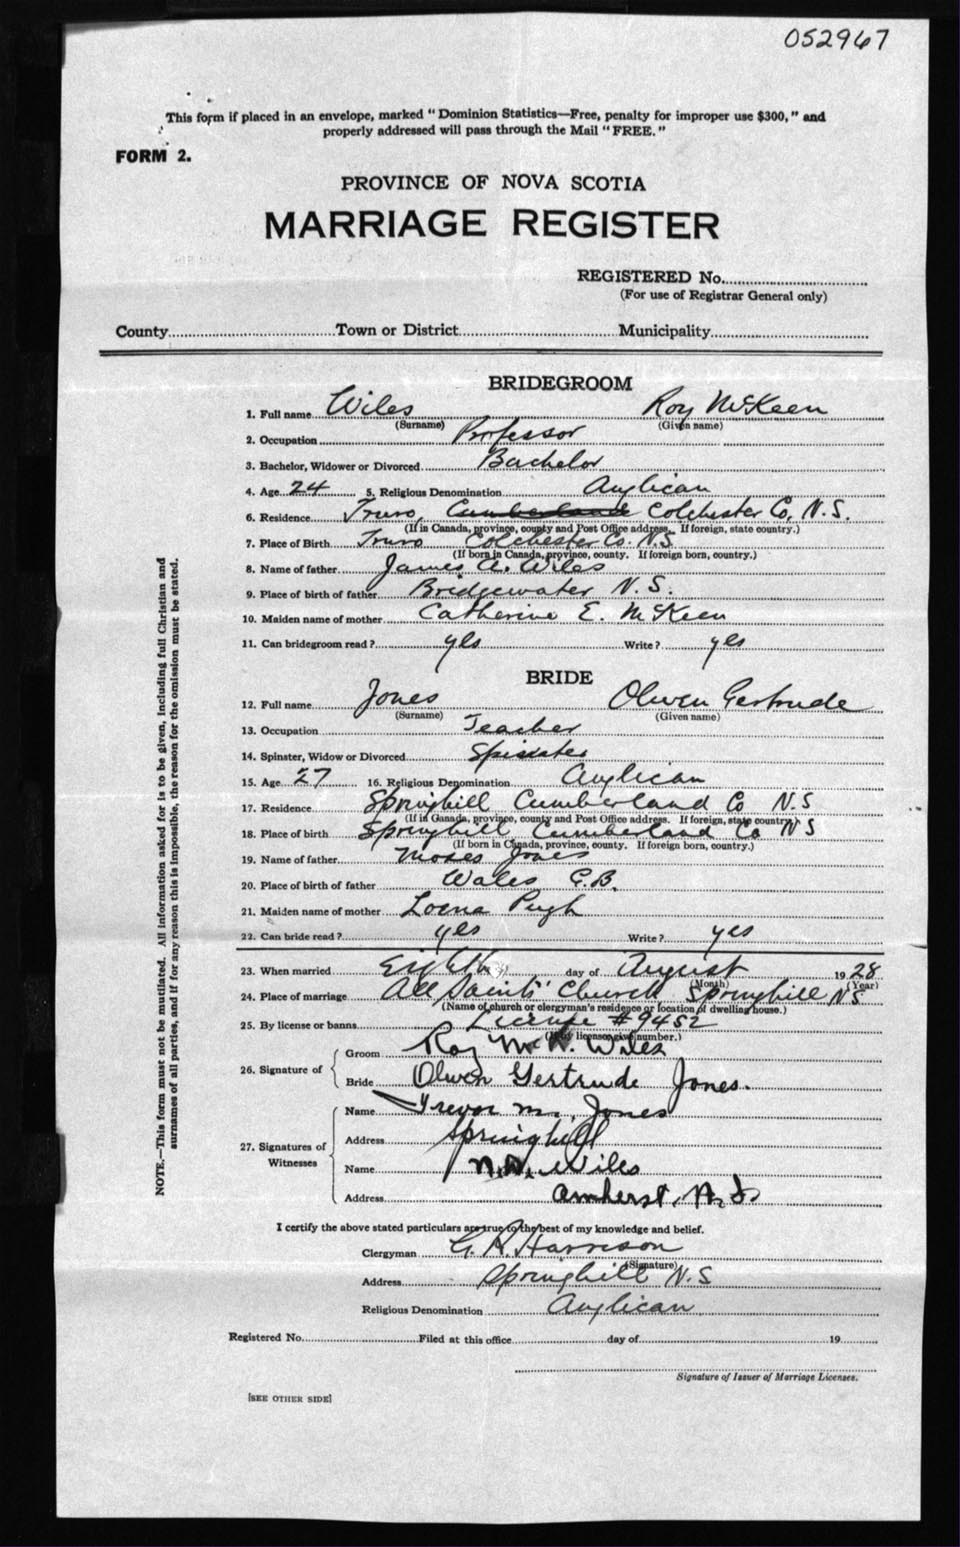 052967
This form if placed in an envelope, marked "Dominion Statistics—Free, penalty for improper use $300," and
properly addressed will pass through the Mail "FREE."
FORM 2.
PROVINCE OF NOVA SCOTIA
MARRIAGE REGISTER
REGISTERED No.
(For use of Registrar General only)
County Town or District Municipality
BRIDEGROOM
1. Full name Wiles Roy McKeen
(Surname) (Given name)
2. Occupation Professor
3. Bachelor, Widower or Divorced Bachelor
4. Age 24 5. Religious Denomination Anglican
6. Residence Truro, Cumberland Colchester Co, N.S.
(If in Canada, province, county and Post Office address. If foreign, state country.)
7. Place of Birth Truro Colchester Co. N.S.
(If born in Canada, province, county. If foreign born, country.)
8. Name of father James A. Wiles
9. Place of birth of father Bridgewater N.S.
10. Maiden name of mother Catherine E. McKeen
11. Can bridegroom read? yes Write? yes
BRIDE
12. Full name Jones Olwen Gertrude
(Surname) (Given name)
13. Occupation Teacher
14. Spinster, Widow or Divorced Spinster
15. Age 27 16. Religious Denomination Anglican
17. Residence Springhill Cumberland Co N.S
(If in Canada, province, county and Post Office address. If foreign, state country)
18. Place of birth Springhill Cumberland Co N S
(If born in Canada, province, county. If foreign born, country.)
19. Name of father Moses Jones
20. Place of birth of father Wales G.B.
21. Maiden name of mother Pugh
22. Can bride read? yes Write? yes
23. When married Eighth day of August 1928
(Month) (Year)
24. Place of marriage All Saints' Church, Springhill NS
(Name of church or clergyman's residence or location of dwelling house.)
25. By license or banns License #9452
(If by license, give number.)
26. Signature of
Groom Roy McK. Wiles
Bride Olwen Gertrude Jones.
27. Signatures of Witnesses
Name Trevor M. Jones
Address Springhill
Name Wiles
Address Amherst, N.S.
I certify the above stated particulars are true to the best of my knowledge and belief.
Clergyman G. R. Harrison
(Signature)
Address Springhill N.S
Religious Denomination Anglican
Registered No. Filed at this office day of 19
Signature of Issuer of Marriage Licenses.
[SEE OTHER SIDE]
NOTE.—This form must not be mutilated. All information asked for is to be given, including full Christian and
surnames of all parties, and if for any reason this is impossible, the reason for the omission must be stated.